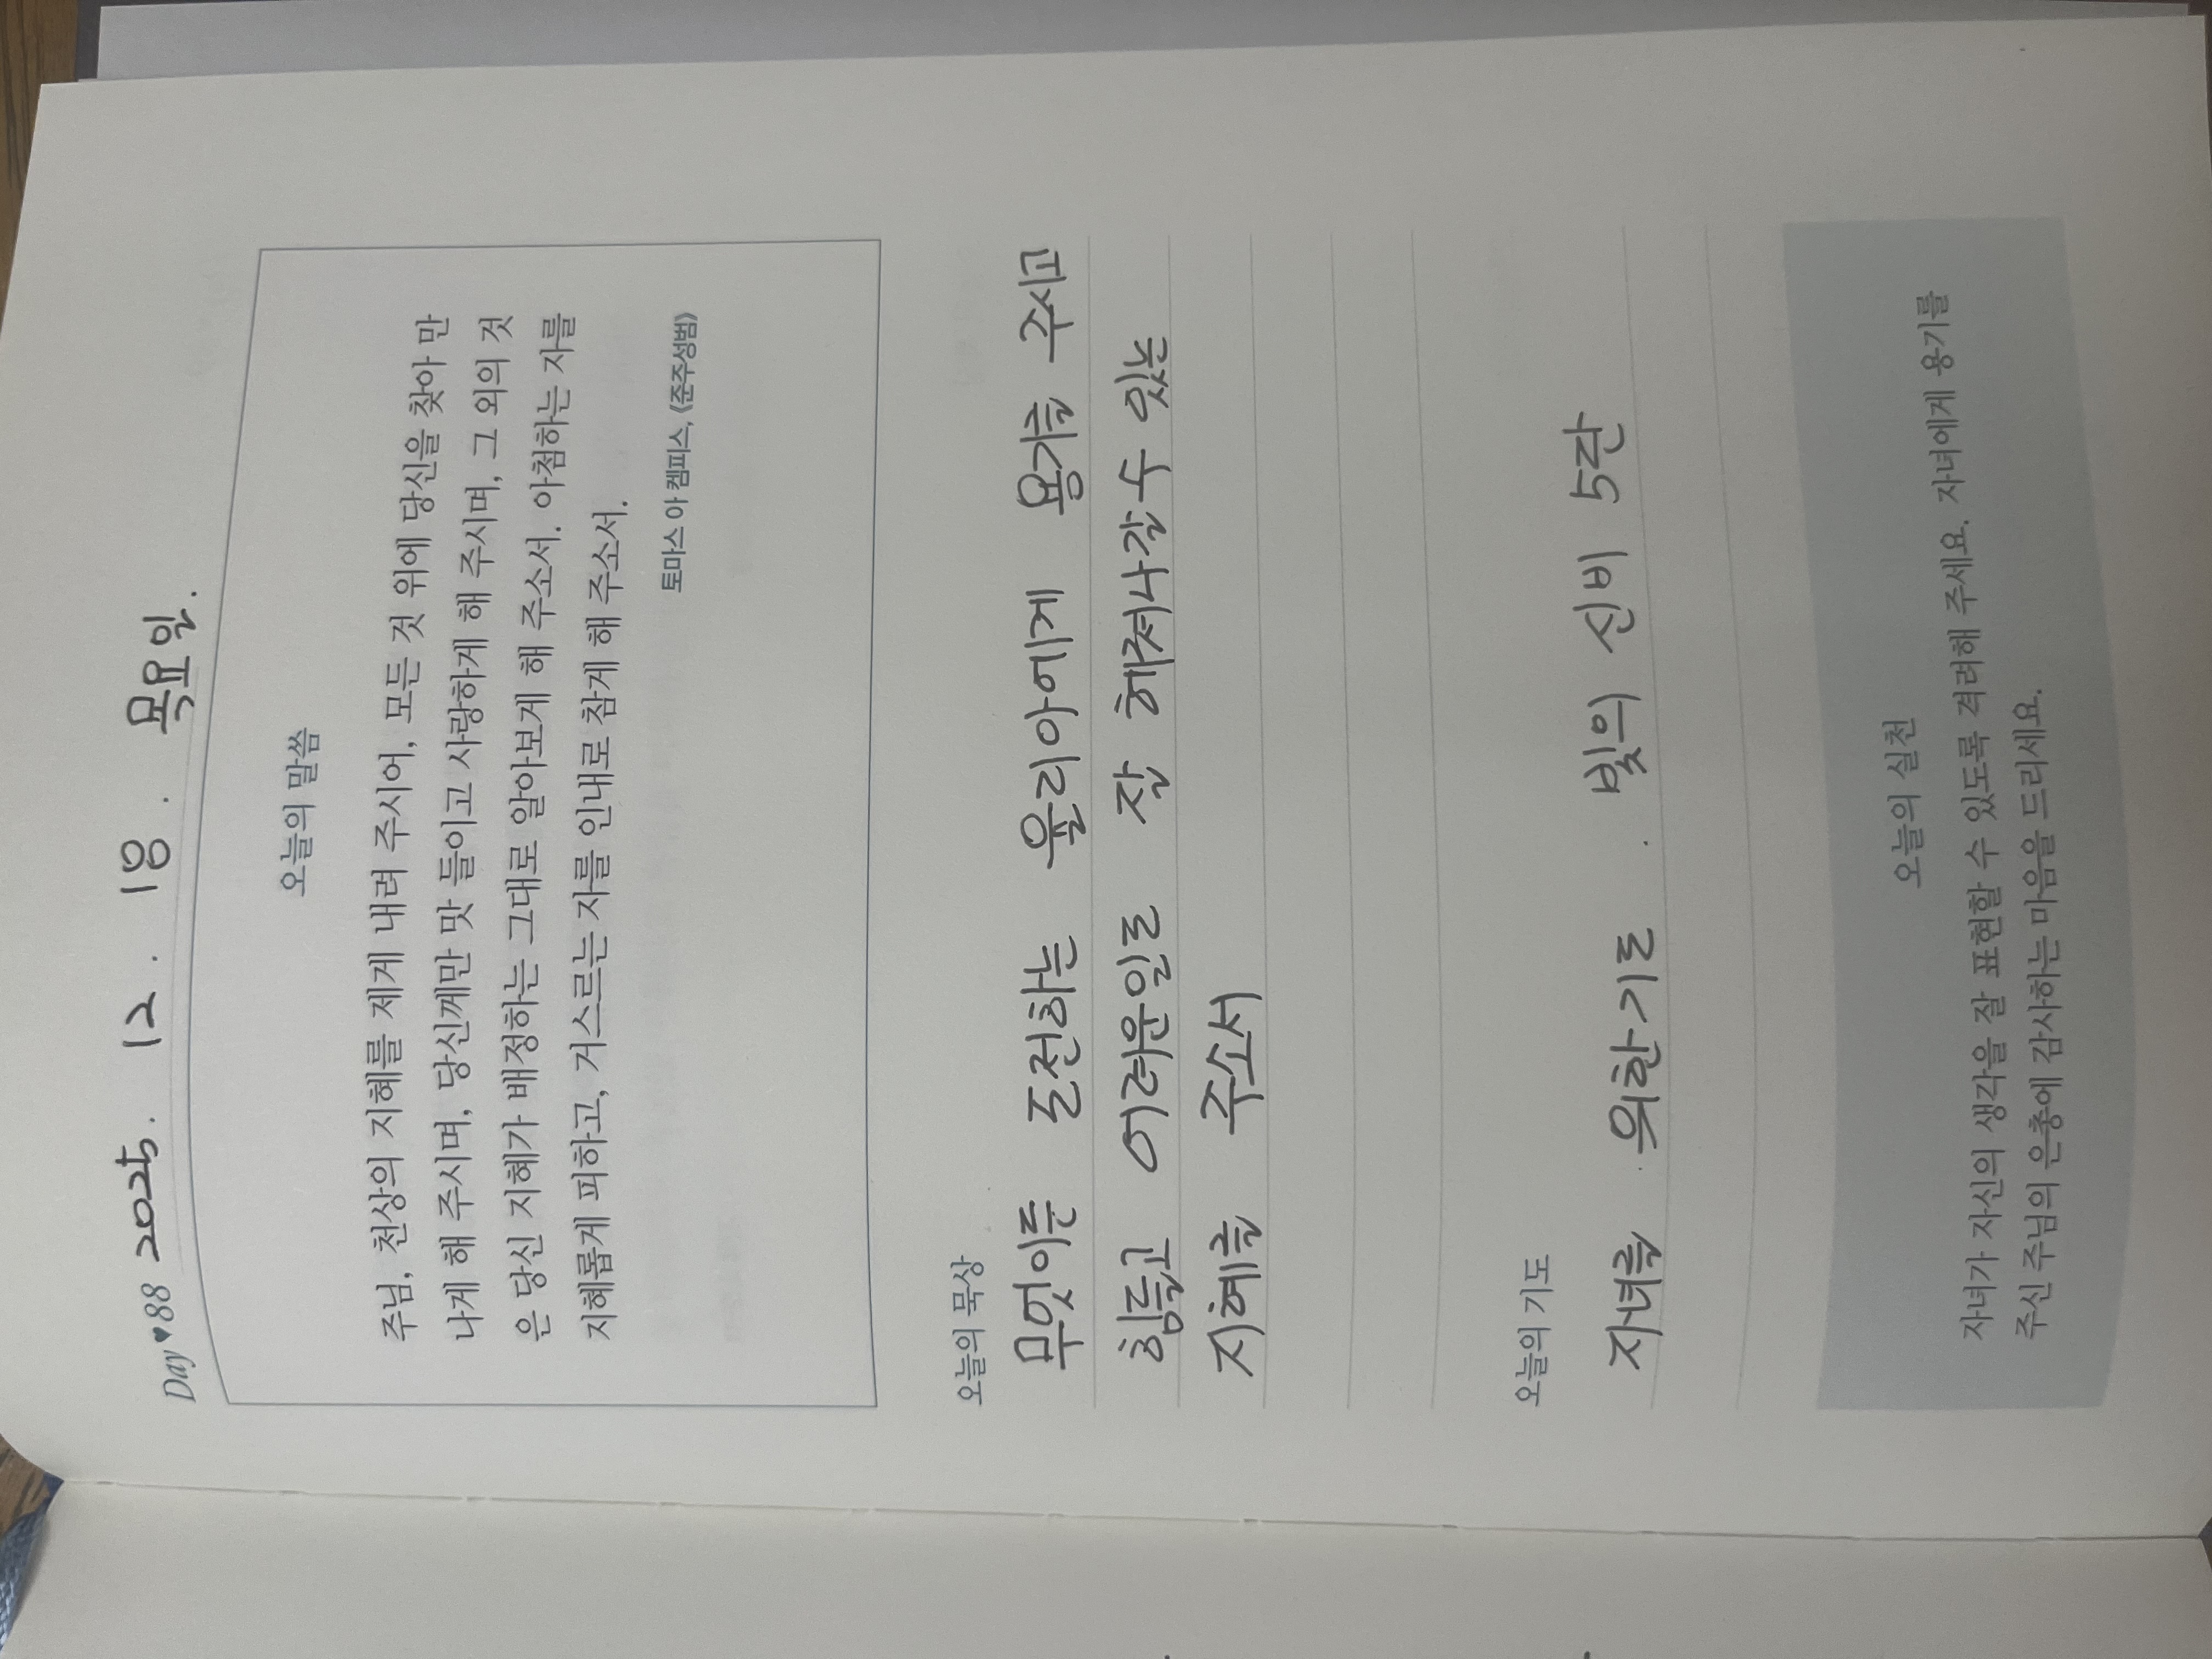 Day♥88 2025. 12. 18. 목요일.
오늘의 말씀
주님, 천상의 지혜를 제게 내려 주시어, 모든 것 위에 당신을 찾아 만
나게 해 주시며, 당신께만 맛 들이고 사랑하게 해 주시며, 그 외의 것
은 당신 지혜가 배정하는 그대로 알아보게 해 주소서. 아첨하는 자를
지혜롭게 피하고, 거스르는 자를 인내로 참게 해 주소서.
토마스 아 켐피스, 《준주성범》
오늘의 묵상
무엇이든 도전하는 율리아에게 용기를 주시고
힘들고 어려운일도 잘 헤쳐나갈수 있는
지혜를 주소서
오늘의 기도
자녀를 위한기도. 빛의 신비 5단
오늘의 실천
자녀가 자신의 생각을 잘 표현할 수 있도록 격려해 주세요. 자녀에게 용기를
주신 주님의 은총에 감사하는 마음을 드리세요.